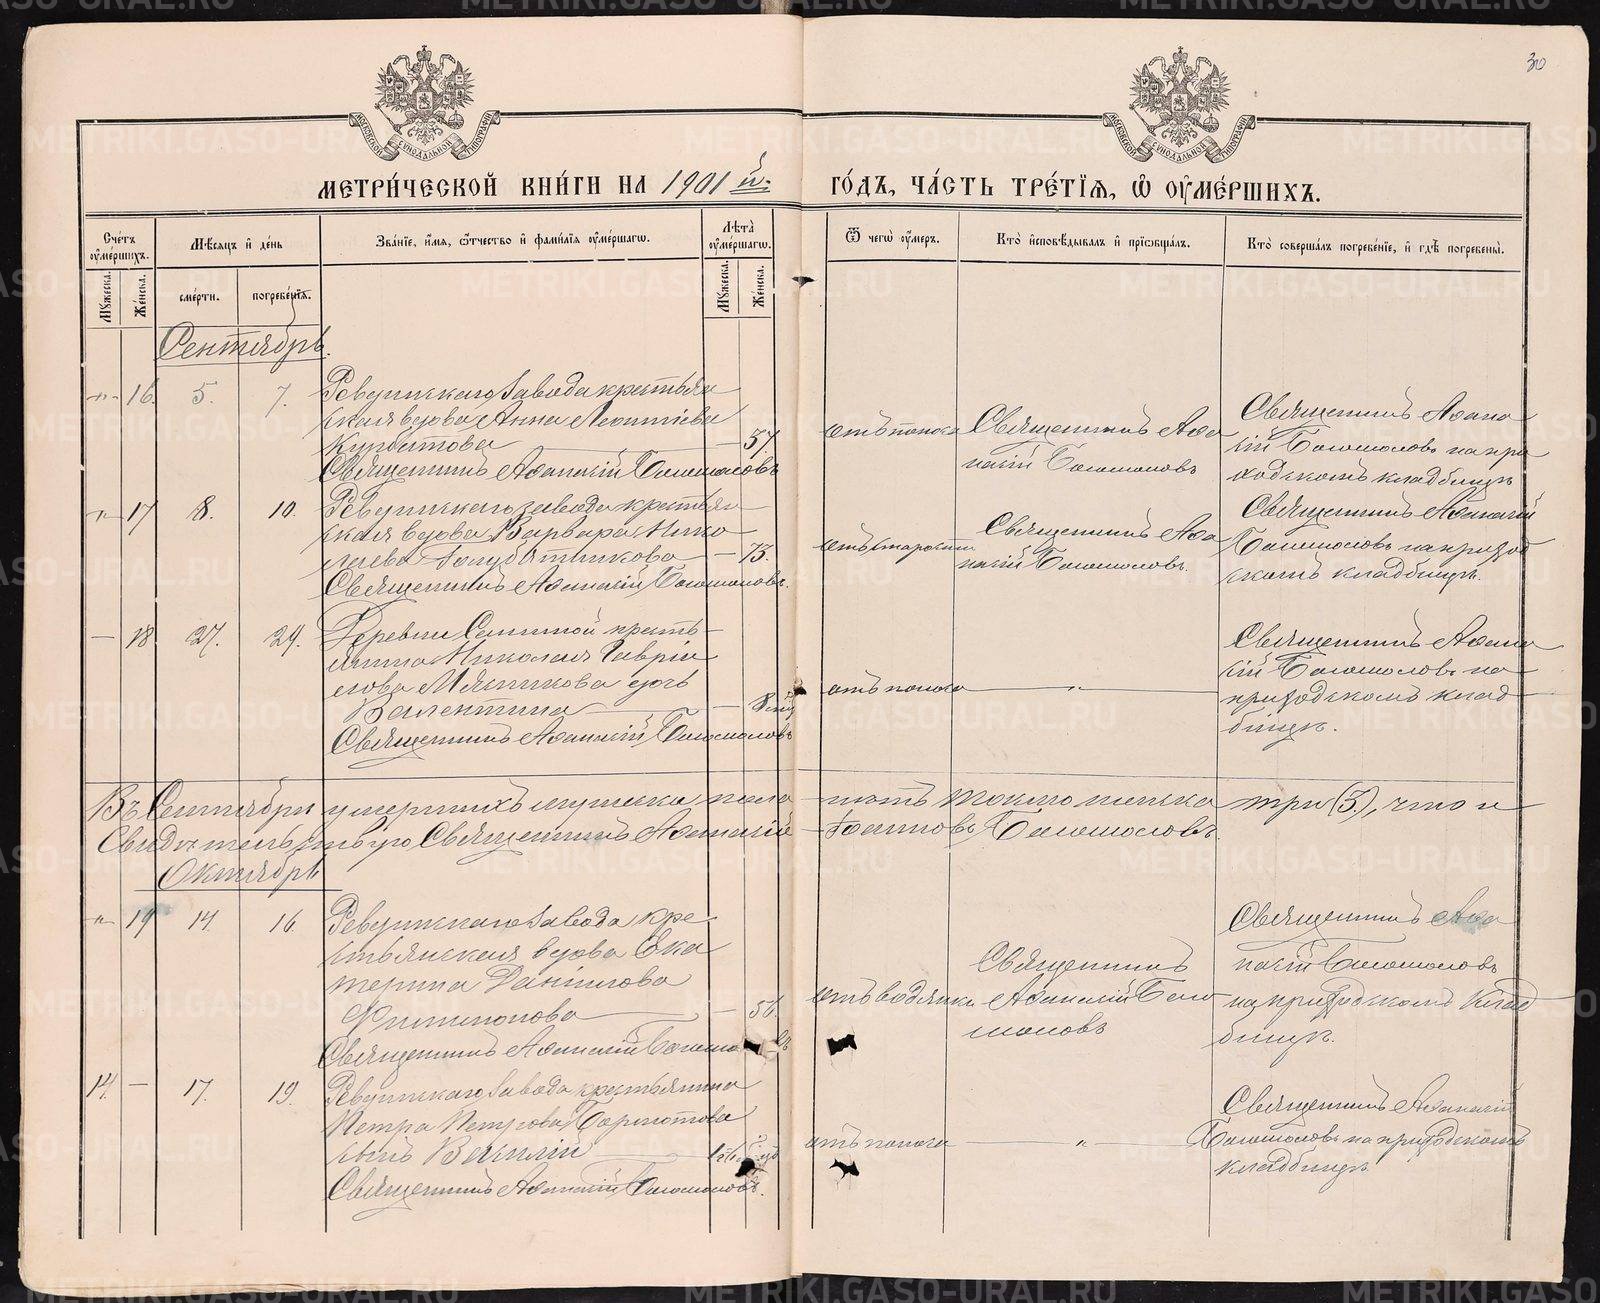 30
МОСКОВСКОЙ СѴНОДАЛЬНОЙ ТИПОГРАФІИ
МОСКОВСКОЙ СѴНОДАЛЬНОЙ ТИПОГРАФІИ
МЕТРИ́ЧЕСКОЙ КНИ́ГИ НА 1901й
ГО́ДЪ, ЧА́СТЬ ТРЕ́ТІѦ, Ѡ҆ ОУ҆МЕ́РШИХЪ.
Сче́тъ оу҆ме́ршихъ.
Мѣ́сяцъ и҆ де́нь
Зва́ніе, и҆́мѧ, ѻ҆́тчество и҆ фами́лїѧ оу҆ме́ршагѡ.
Лѣта̀ оу҆ме́ршагѡ.
Ѿ чегѡ̀ оу҆́меръ.
Кто̀ и҆сповѣ́дывалъ и҆ прїѻбща́лъ.
Кто̀ соверша́лъ погребе́нїе, и҆ гдѣ̀ погребены̀.
Мꙋ́жеска.
Же́нска.
сме́рти.
погребе́нїѧ.
Мꙋ́жеска.
Же́нска.
Сентябрь.
"
16.
5.
7.
Ревдинскаго завода крестьян
ская вдова Анна Леонтіева
Курбатова
57.
Священникъ Аѳанасій Богомоловъ
отъ поноса
Священникъ Аѳа
насій Богомоловъ
Священникъ Аѳана
сій Богомоловъ на при
ходскомъ кладбищѣ
"
17
8.
10.
Ревдинскаго завода крестьян
ская вдова Варвара Нико
лаева Голубятникова
73.
Священникъ Аѳанасій Богомоловъ.
отъ старости
Священникъ Аѳа
насій Богомоловъ.
Священникъ Аѳанасій
Богомоловъ на приход
скомъ кладбищѣ.
—
18.
27.
29.
Деревни крестья
янина Николая Гавріи
лова Мясникова дочь
Валентина
8
Священникъ Аѳанасій Богомоловъ
отъ поноса
"
Священникъ Аѳана
сій Богомоловъ на
приходскомъ клад
бищѣ.
Въ Сентябрѣ умершихъ мужска пола нѣтъ токмо женска три (3), что и
Свидѣтельствую Священникъ Аѳанасій Іоанновъ Богомоловъ.
Октябрь
"
19
14.
16.
Ревдинскаго завода кре
стьянская вдова Ека
терина Даніилова
Филимонова
56.
Священникъ Аѳанасій Богомо
отъ водянки
Священникъ
Аѳанасій Бого
моловъ
Священникъ Аѳа
насій Богомоловъ
на приходскомъ клад
бищѣ.
14.
—
17.
19.
Ревдинскаго завода крестьянина
Петра Петрова
сынъ Василій
Священникъ Аѳанасій Богомоловъ.
отъ поноса
"
Священникъ Аѳанасій
Богомоловъ на приходскомъ
кладбищѣ
METRIKI.GASO-URAL.RU